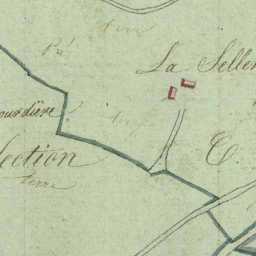 terre
Pré
La Seller
ourdière
terre
Section
E.
terre